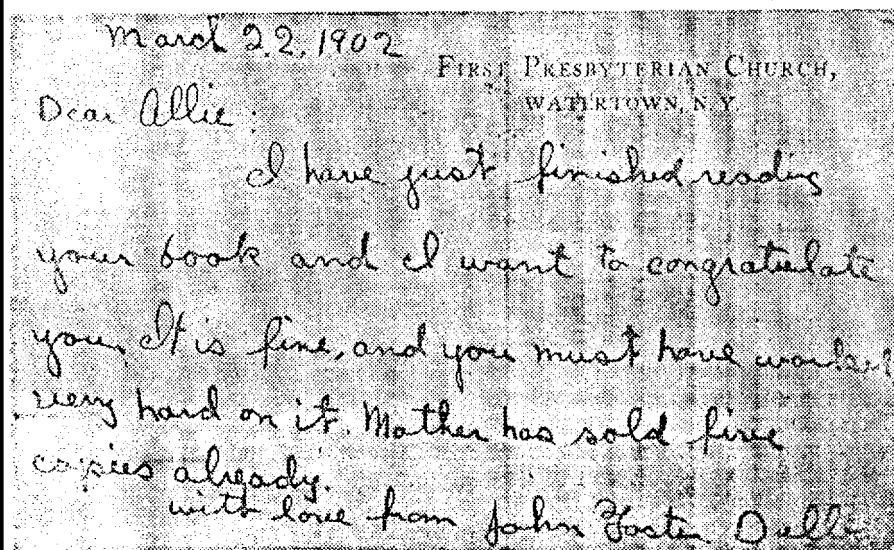 March 22, 1902
FIRST PRESBYTERIAN CHURCH,
WATERTOWN, N.Y.
Dear Allie:
I have just finished reading
your book and I want to congratulate
you. It is fine, and you must have worked
very hard on it. Mother has sold five
copies already.
with love from John Foster Dulles